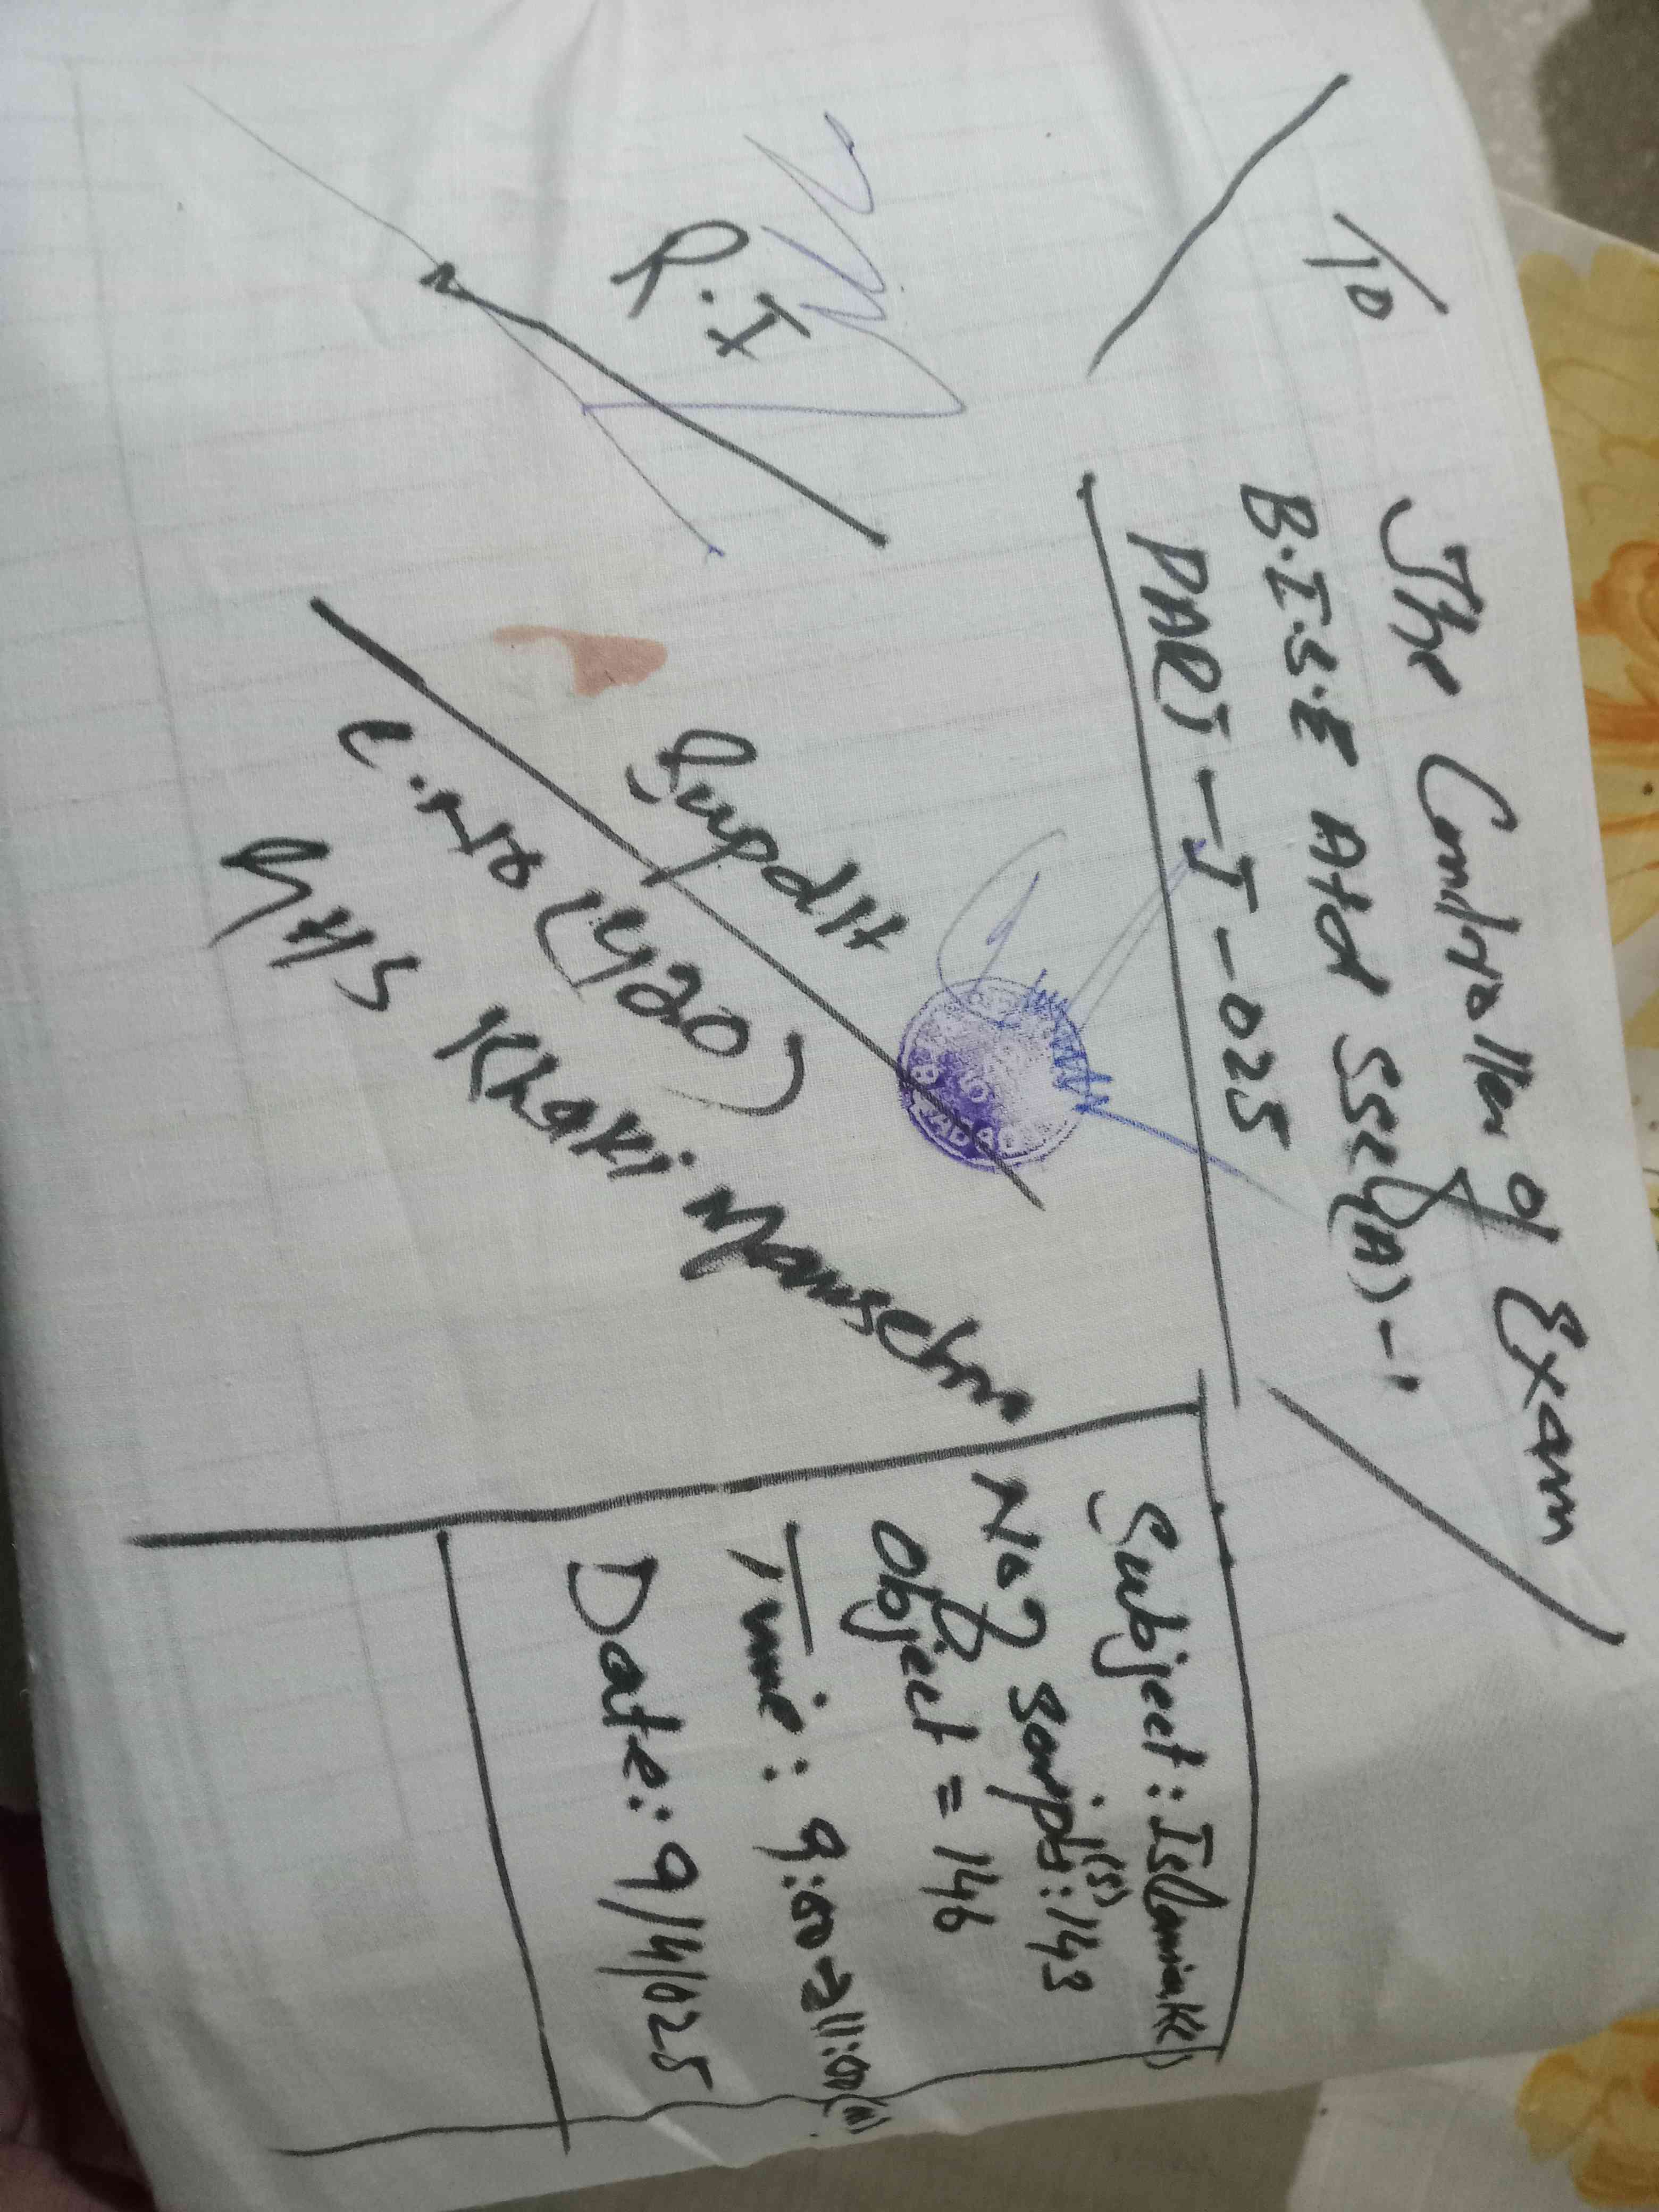 To
The Controller of Exam
B.I.S.E Atd SSC(A)-1
PART-I-025
R.I
Supdtt
C.No (420)
GHS Khaki Mansehra
Subject: Islamiat(C)
No of Scripts(s): 143
Object = 146
Time: 9:00→11:00(M)
Date: 9/4/025